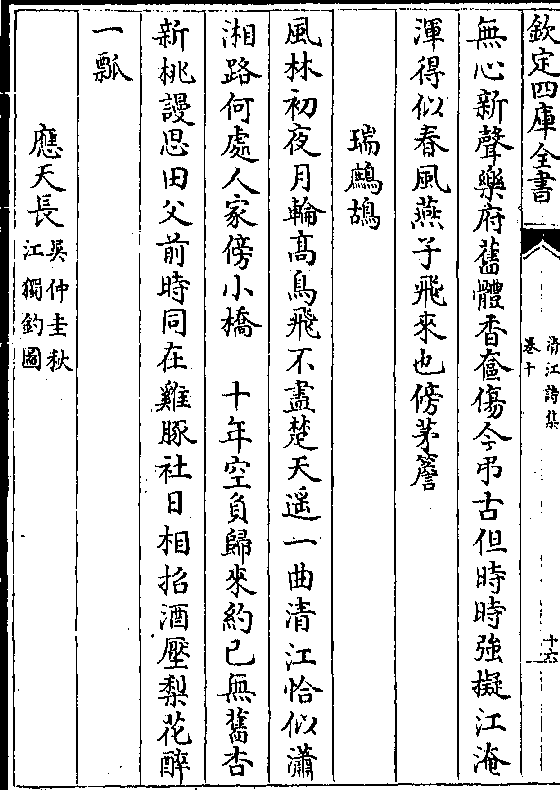 欽定四庫全書
清江詩集
卷十
十六
無心新聲樂府舊體香奩傷今弔古但時時強擬江淹
渾得似春風燕子飛來也傍茅簷
瑞鷓鴣
風林初夜月輪高鳥飛不盡楚天遥一曲清江恰似瀟
湘路何處人家傍小橋　十年空負歸來約已無舊杏
新桃謾思田父前時同在雞豚社日相招酒壓梨花醉
一瓢
應天長吳仲圭秋
江獨釣圖